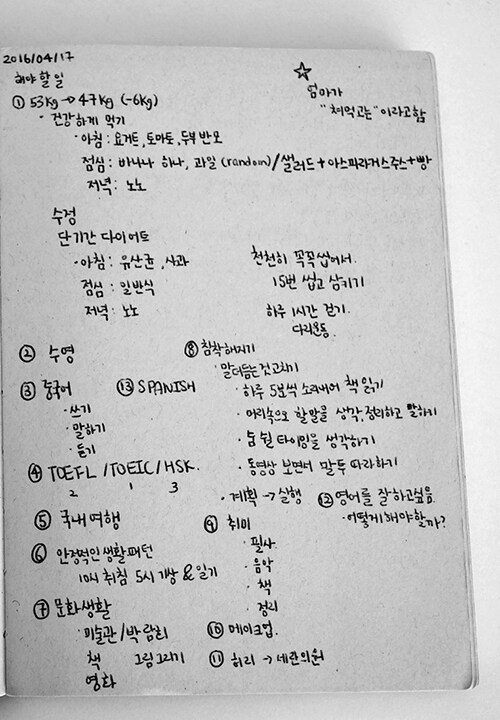 2016/04/17
해야 할 일
① 53kg → 47kg (-6kg)
· 건강하게 먹기
· 아침 : 요거트, 토마토, 두부 반모
점심 : 바나나 하나, 과일 (random) / 샐러드 + 아스파라거스주스 + 빵
저녁 : 노노
☆
엄마가
"쳐먹고는" 이라고 함
수정
단기간 다이어트
· 아침 : 유산균, 사과
점심 : 일반식
저녁 : 노노
천천히 꼭꼭 씹어서.
15번 씹고 삼키기
하루 1시간 걷기.
다리운동.
② 수영
③ 중국어
· 쓰기
· 말하기
· 듣기
⑬ SPANISH
④ TOEFL / TOEIC / HSK.
2 1 3
⑤ 국내 여행
⑥ 안정적인 생활패턴
10시 취침 5시 기상 & 일기
⑦ 문화생활
· 미술관 / 박람회
책 그림그리기
영화
⑧ 침착해지기
· 말더듬는것 고치기
· 하루 5분씩 소리내어 책 읽기
· 머리속으로 할말을 생각, 정리하고 말하기
· 숨 쉴 타이밍을 생각하기
· 동영상 보면서 말투 따라하기
· 계획 → 실행
⑨ 취미
· 필사
· 음악
· 책
· 정리
⑩ 메이크업.
⑪ 허리 → 네란의원
⑫ 영어를 잘 하고싶음.
· 어떻게 해야 할까?